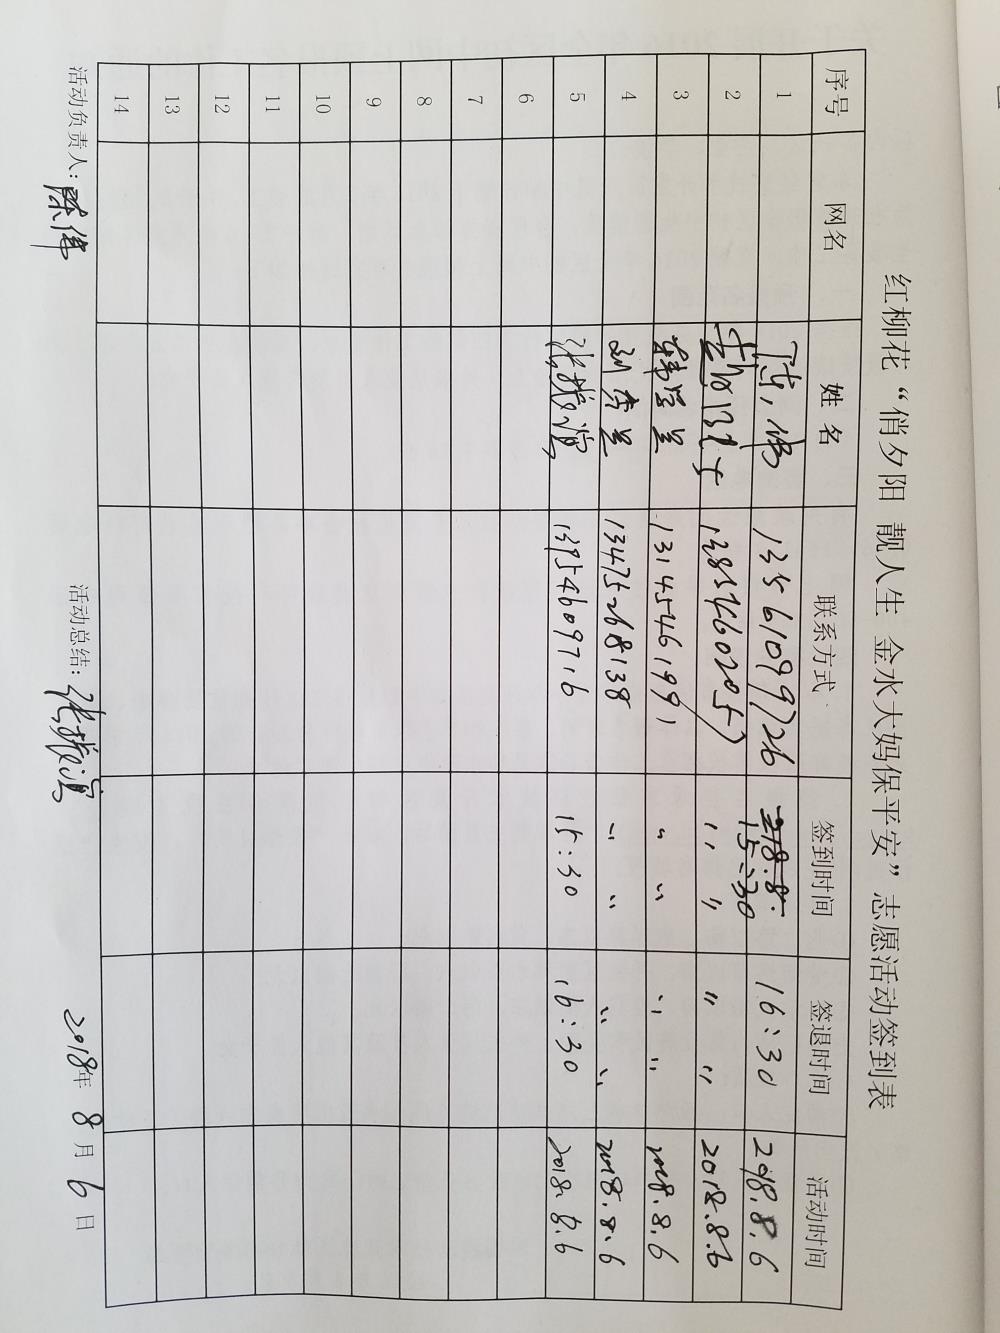 红柳花“俏夕阳 靓人生 金水大妈保平安”志愿活动签到表
序号 网名 姓名 联系方式 签到时间 签退时间 活动时间
1 陈伟 13561099726 15:30 16:30 2018.8.6
2 13854602057 〃 〃 〃 〃 2018.8.6
3 韩学兰 13145461991 〃 〃 〃 〃 2018.8.6
4 刘秀兰 13475268138 〃 〃 〃 〃 2018.8.6
5 张振滨 13954609716 15:30 16:30 2018.8.6
6
7
8
9
10
11
12
13
14
活动负责人:陈伟 活动总结:张振滨 2018年8月6日